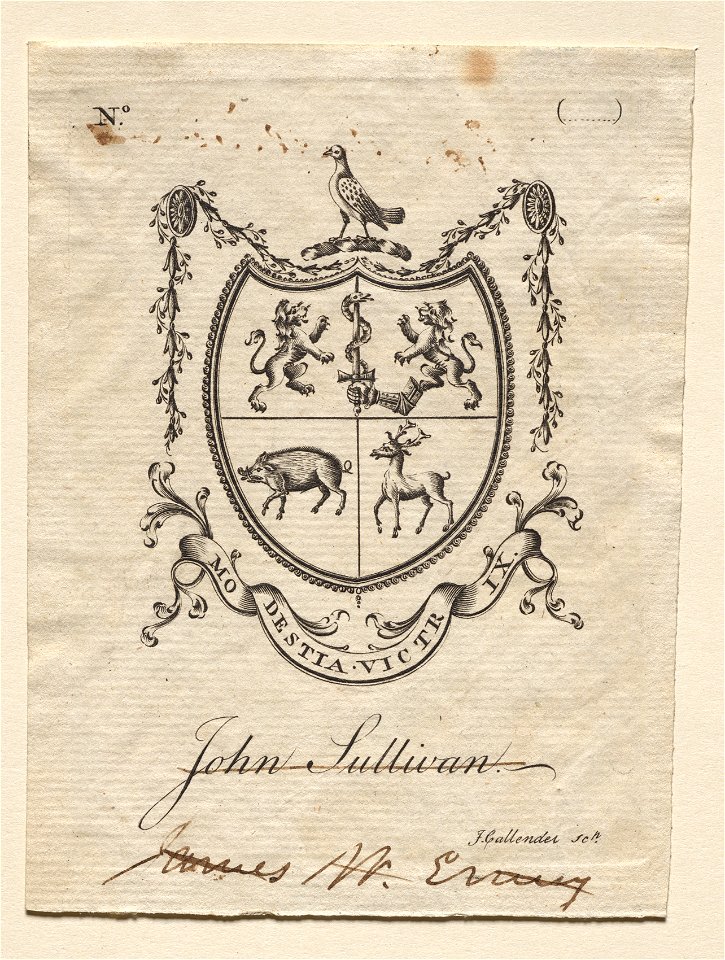 No. (........)
MODESTIA·VICTRIX.
John Sullivan.
J. Callender sct.
James W. Emery